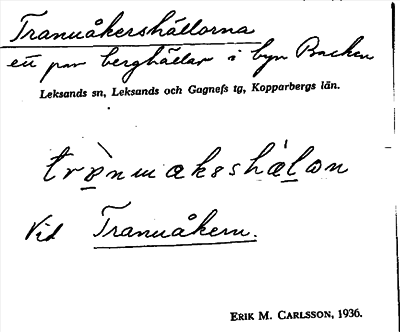 Tranuåkershällorna
ett par berghällar i byn Backen
Leksands sn, Leksands och Gagnefs tg, Kopparbergs län.
Vid Tranuåkern.
ERIK M. CARLSSON, 1936.